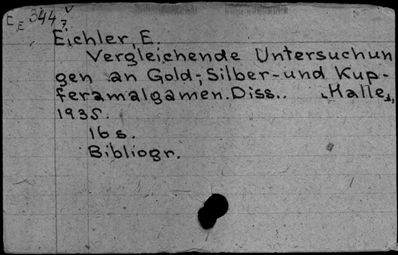 Eichler, E.
Vergleichende Untersuchun
gen an Gold-, Silber- und Kup-
feramalgamen. Diss.. „Halle",
1935.
16 s.
Bibliogr.